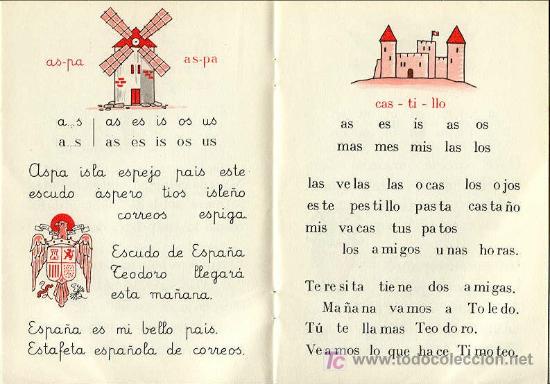 as-pa
as-pa
a...s | as es is os us
a...s | as es is os us
Aspa isla espejo pais este
escudo áspero tios isleño
correos espiga
Escudo de España
Teodoro llegará
esta mañana.
España es mi bello pais.
Estafeta española de correos.
cas - ti - llo
as es is as os
mas mes mis las los
las velas las ocas los ojos
este pestillo pasta castaño
mis vacas tus patos
los amigos unas horas.
Teresita tiene dos amigas.
Mañana vamos a Toledo.
Tú te llamas Teodoro.
Veamos lo que hace Timoteo.
todocoleccion.net